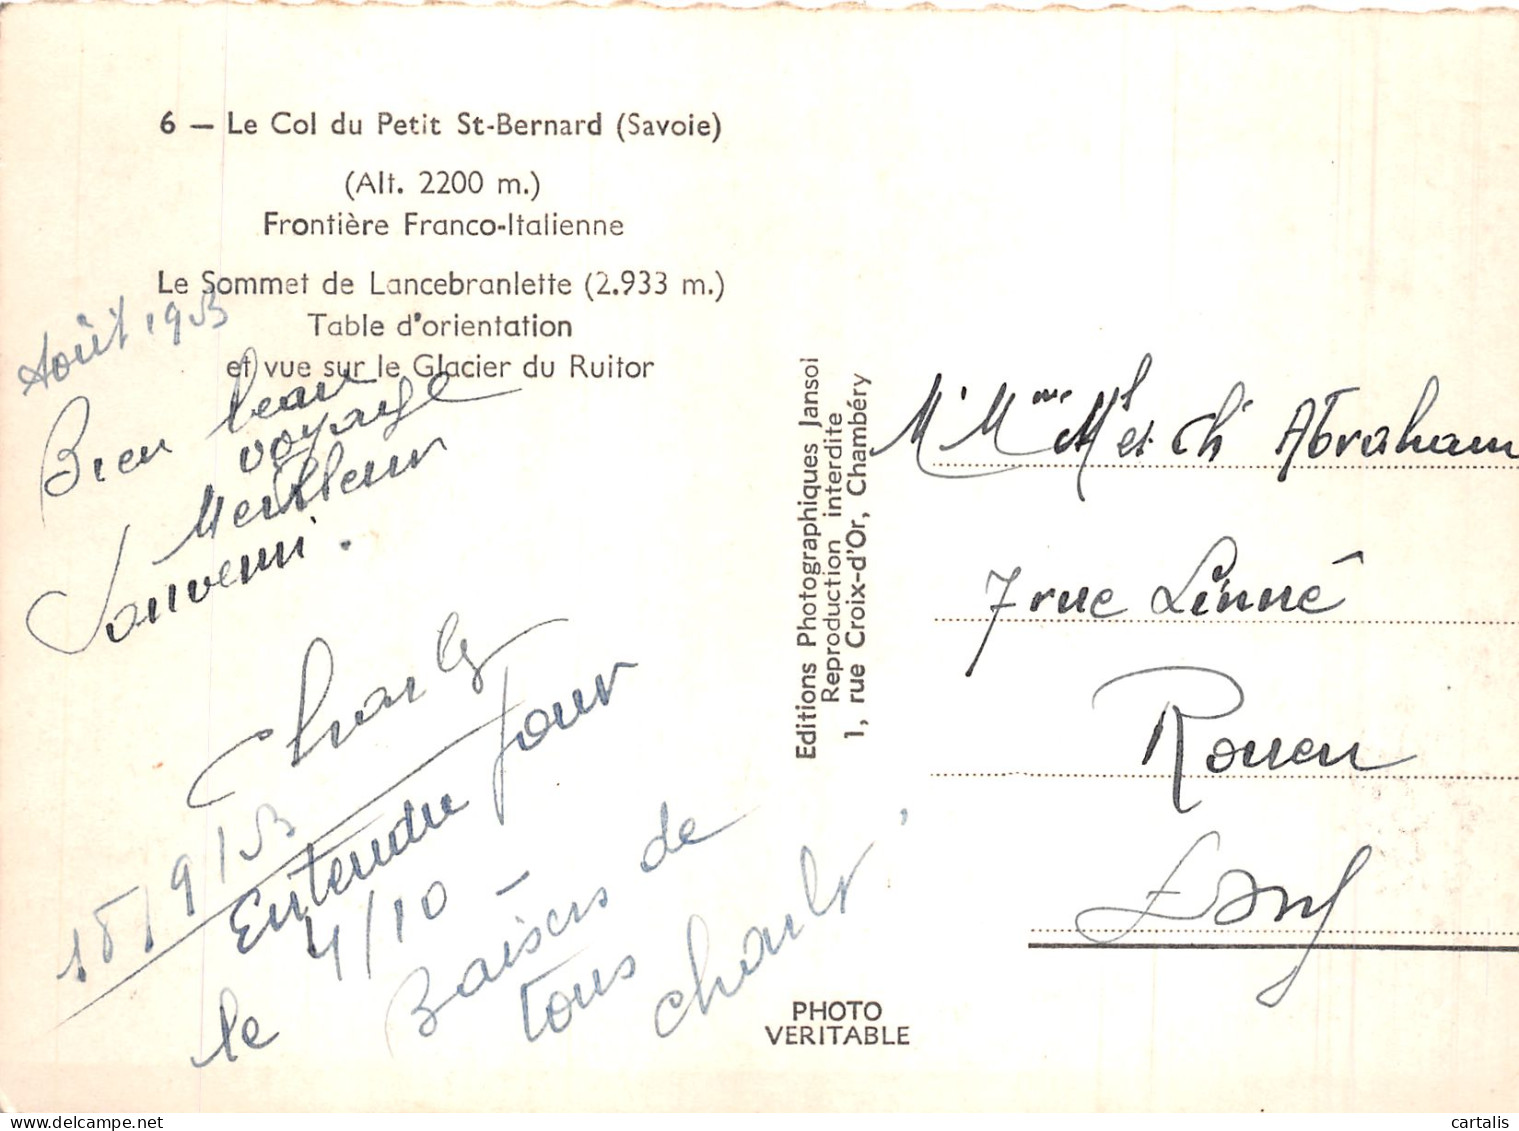 6 — Le Col du Petit St-Bernard (Savoie)
(Alt. 2200 m.)
Frontière Franco-Italienne
Le Sommet de Lancebranlette (2.933 m.)
Table d'orientation
et vue sur le Glacier du Ruitor
Août 1953
Bien beau
voyage
Meilleur
Souvenir.
Charly
18/9/53
Entendu pour
le 4/10 –
Baisers de
tous
Charly
Editions Photographiques Jansol
Reproduction interdite
1, rue Croix-d'Or, Chambéry
PHOTO
VERITABLE
Mr Mme et Ch Abraham
7 rue Linné
Rouen
delcampe.net
cartalis